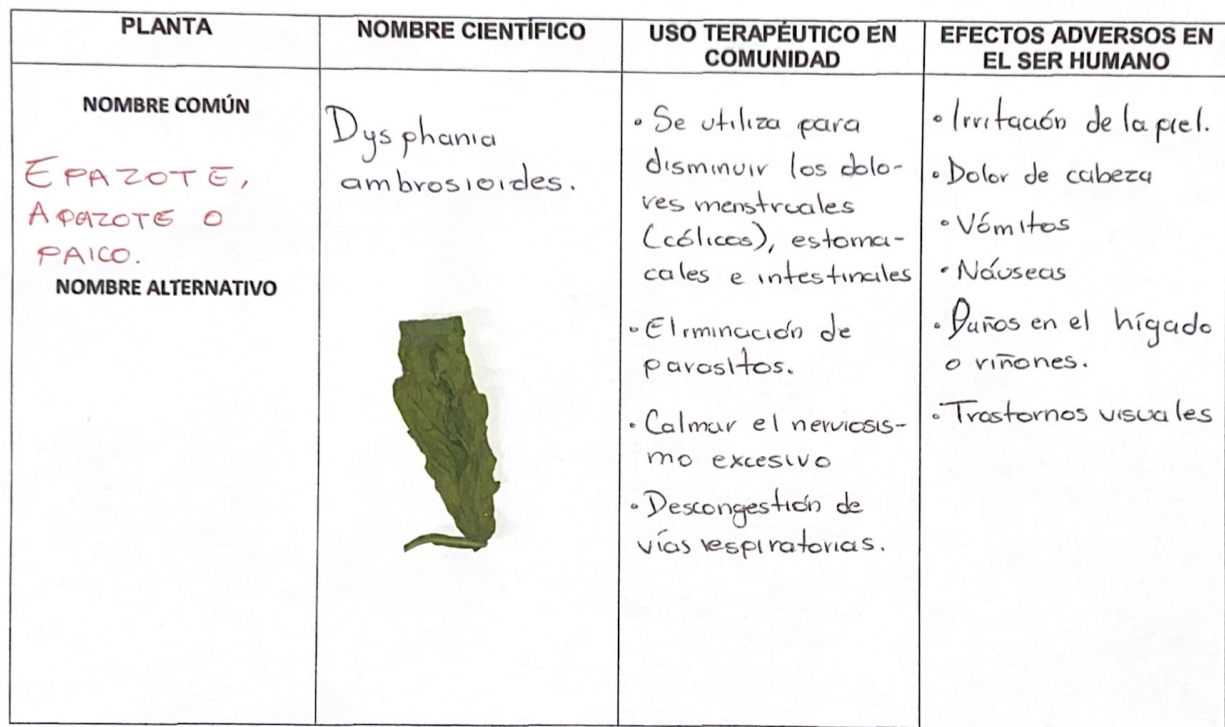 PLANTA
NOMBRE CIENTÍFICO
USO TERAPÉUTICO EN
COMUNIDAD
EFECTOS ADVERSOS EN
EL SER HUMANO
NOMBRE COMÚN
EPAZOTE,
APAZOTE O
PAICO.
NOMBRE ALTERNATIVO
Dysphania
ambrosioides.
• Se utiliza para
disminuir los dolo-
res menstruales
(cólicos), estoma-
cales e intestinales
• Eliminación de
parasitos.
• Calmar el nerviosis-
mo excesivo
• Descongestión de
vías respiratorias.
• Irritación de la piel.
• Dolor de cabeza
• Vómitos
• Náuseas
• Daños en el hígado
o riñones.
• Trastornos visuales